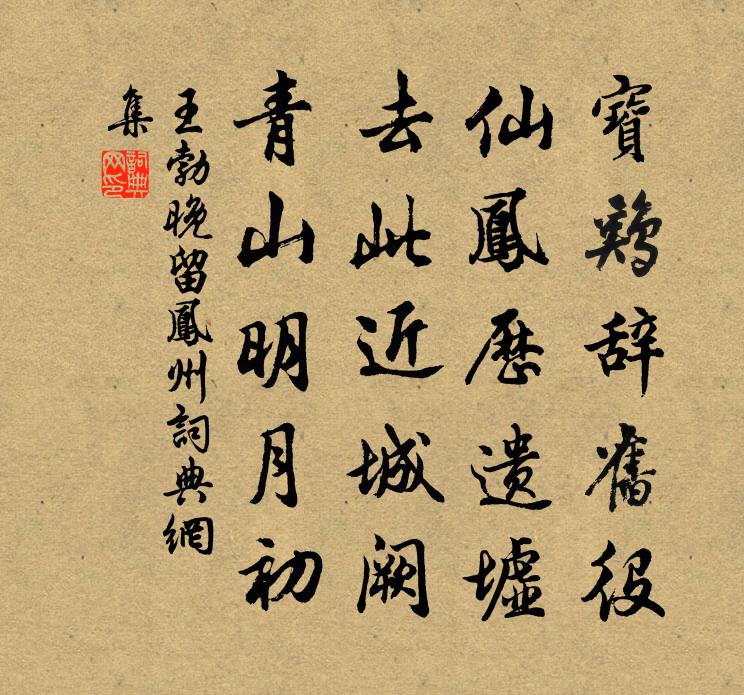 寶鷄辞舊役
仙鳳歷遗墟
去此近城阙
青山明月初
王勃晚留鳳州詞典網
集
詞典
网印